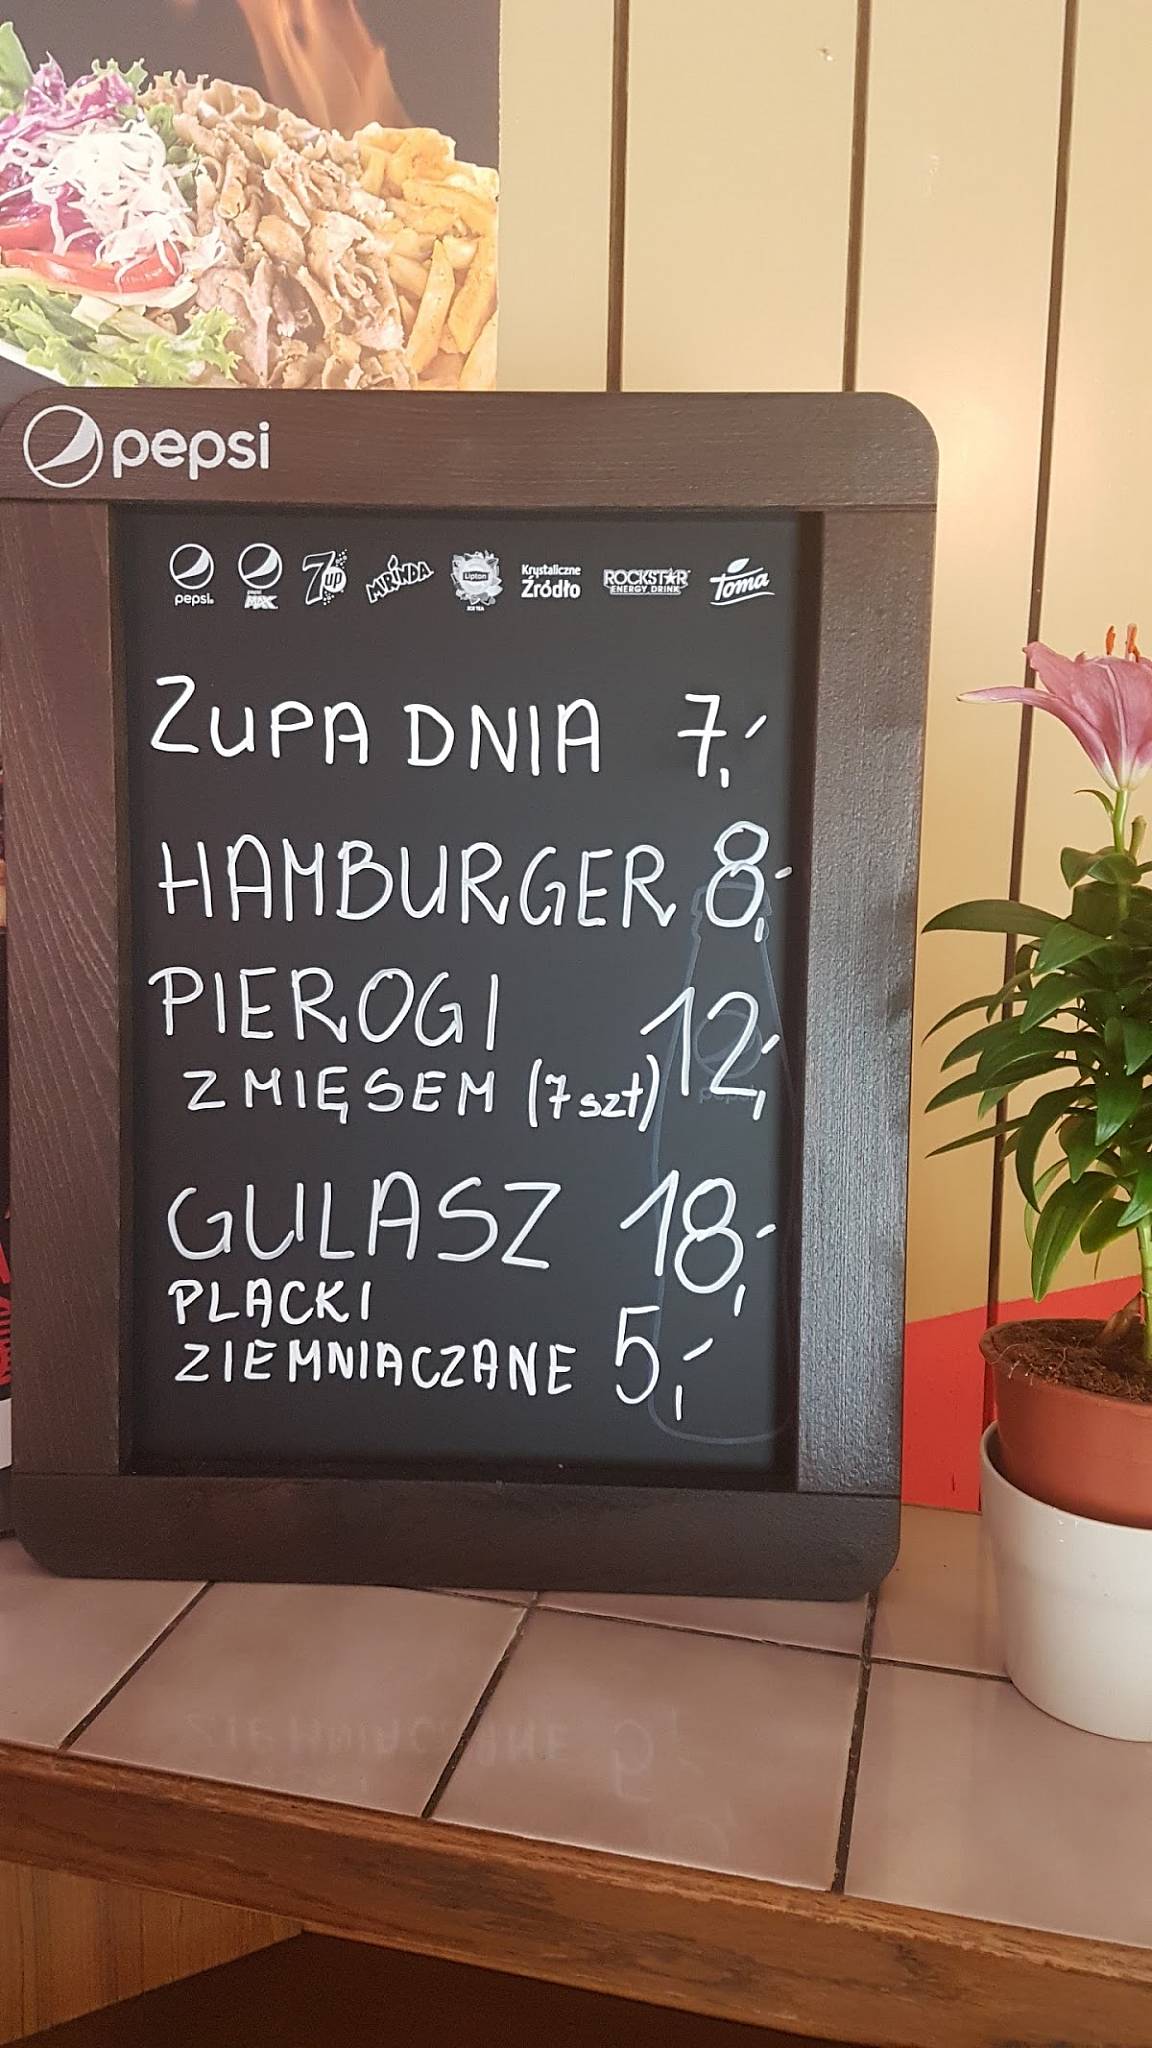 pepsi
pepsi. pepsi MAX 7up MIRINDA Lipton ICE TEA Krystaliczne Źródło ROCKSTAR ENERGY DRINK Toma
ZUPA DNIA 7,-
HAMBURGER 8,-
PIEROGI 12,-
Z MIĘSEM (7szt)
GULASZ 18,-
PLACKI
ZIEMNIACZANE 5,-
pepsi